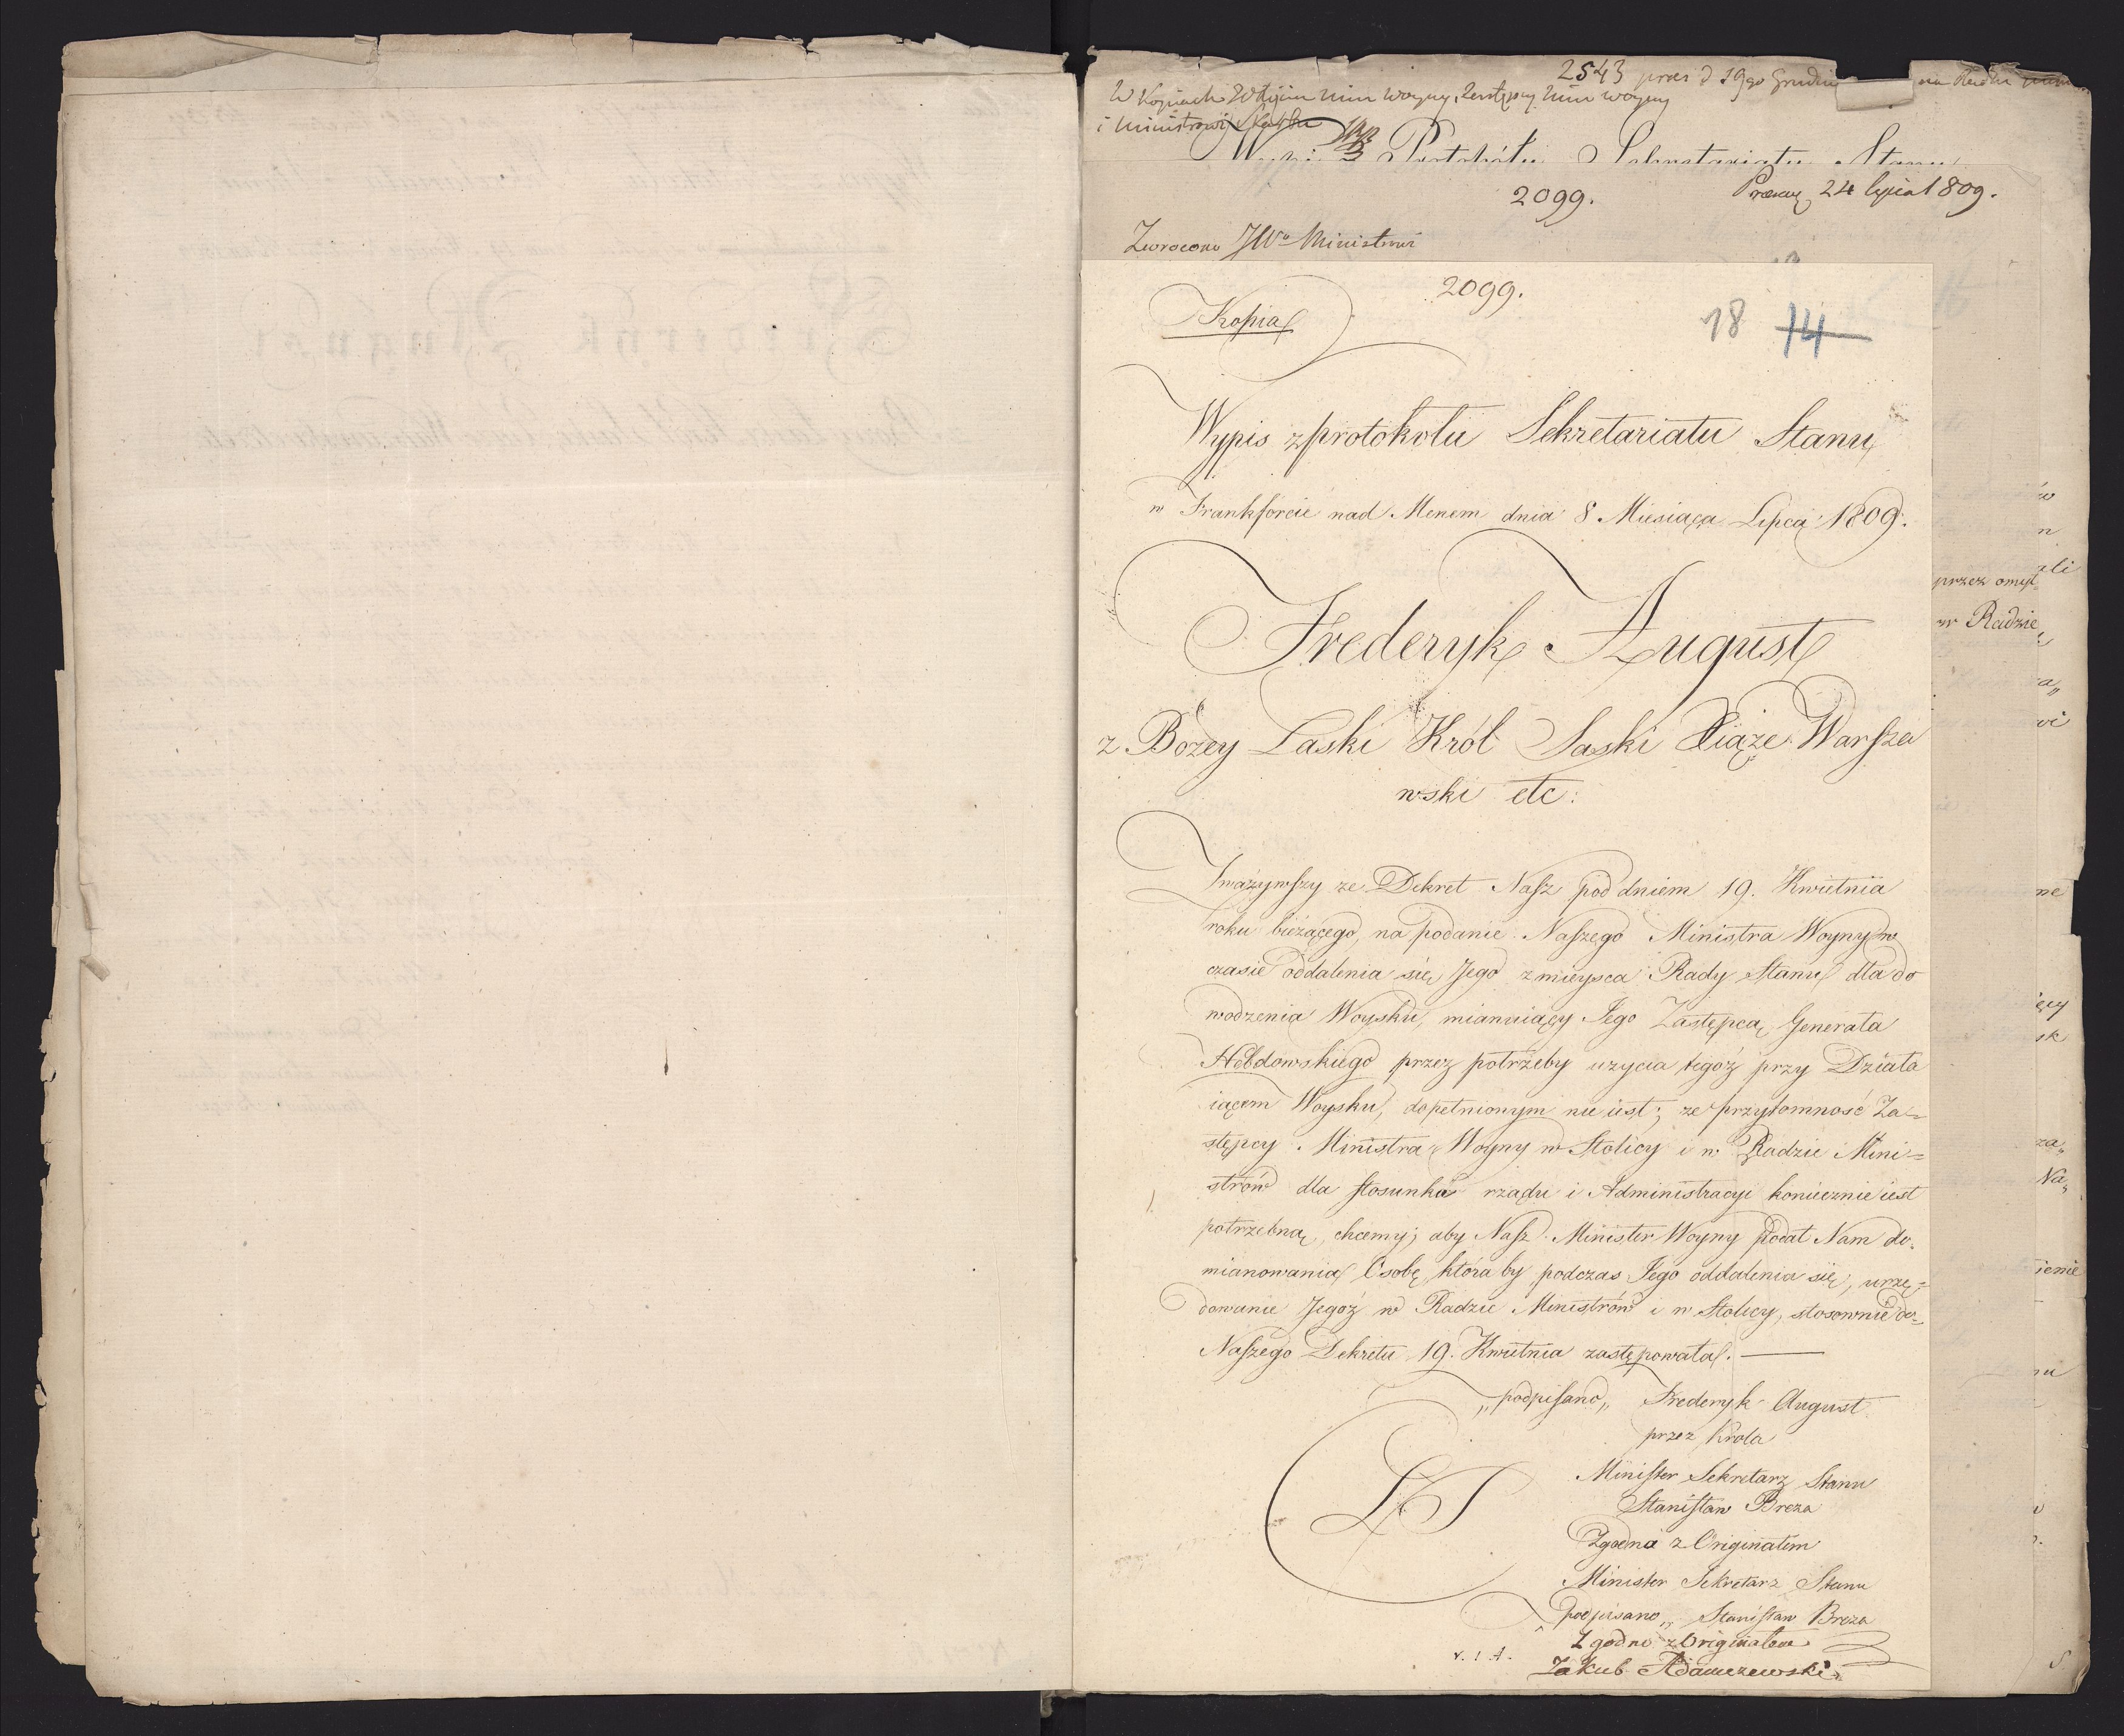 2543 prez d 19go Grudnia na Radzie
W Kopiach Wdziem Min Woyny, Zastępcy Min woyny
i Ministrowi Skarbu
Wypis z Protokołu Sekretariatu Stanu
2099. Praes. 24 lipca 1809.
Zwrocono JWu Ministrowi
2099.
Kopia
18 14
Wypis z protokołu Sekretariatu Stanu
w Frankforcie nad Menem dnia 8 Miesiąca Lipca 1809.
Frederyk August
z Bożey Łaski Król Saski Xiąże Warsza
wski etc:
Zważywszy ze Dekret Nasz pod dniem 19. Kwietnia
roku bieżącego, na podanie Naszego Ministra Woyny w
czasie oddalenia się Jego z mieysca Rady Stanu dla do
wodzenia Woysku, mianuiący Jego Zastępcą Generała
Hebdowskiego przez potrzeby uzycia tegoż przy Działa
iącem Woysku, dopełnionym nie iest; ze przytomność Za=
stępcy Ministra Woyny w Stolicy i w Radzie Mini=
strów dla stosunków rządu i Administracyi koniecznie iest
potrzebną, chcemy; aby Nasz Minister Woyny podał Nam do
mianowania Osobę która by podczas Jego oddalenia się, urzę=
dowanie Jegoż w Radzie Ministrów i w Stolicy, stosownie do=
Naszego Dekretu 19. Kwietnia zastępowała. —
„podpisano„ Frederyk August
przez Krola
Minister Sekretarz Stanu
Stanisław Breza
LS
Zgodna z Originałem
Minister Sekretarz Stanu
podpisano„ Stanisław Breza
Zgodno z Originałem
Jakub Adamczewski
przez omył
w Radzie